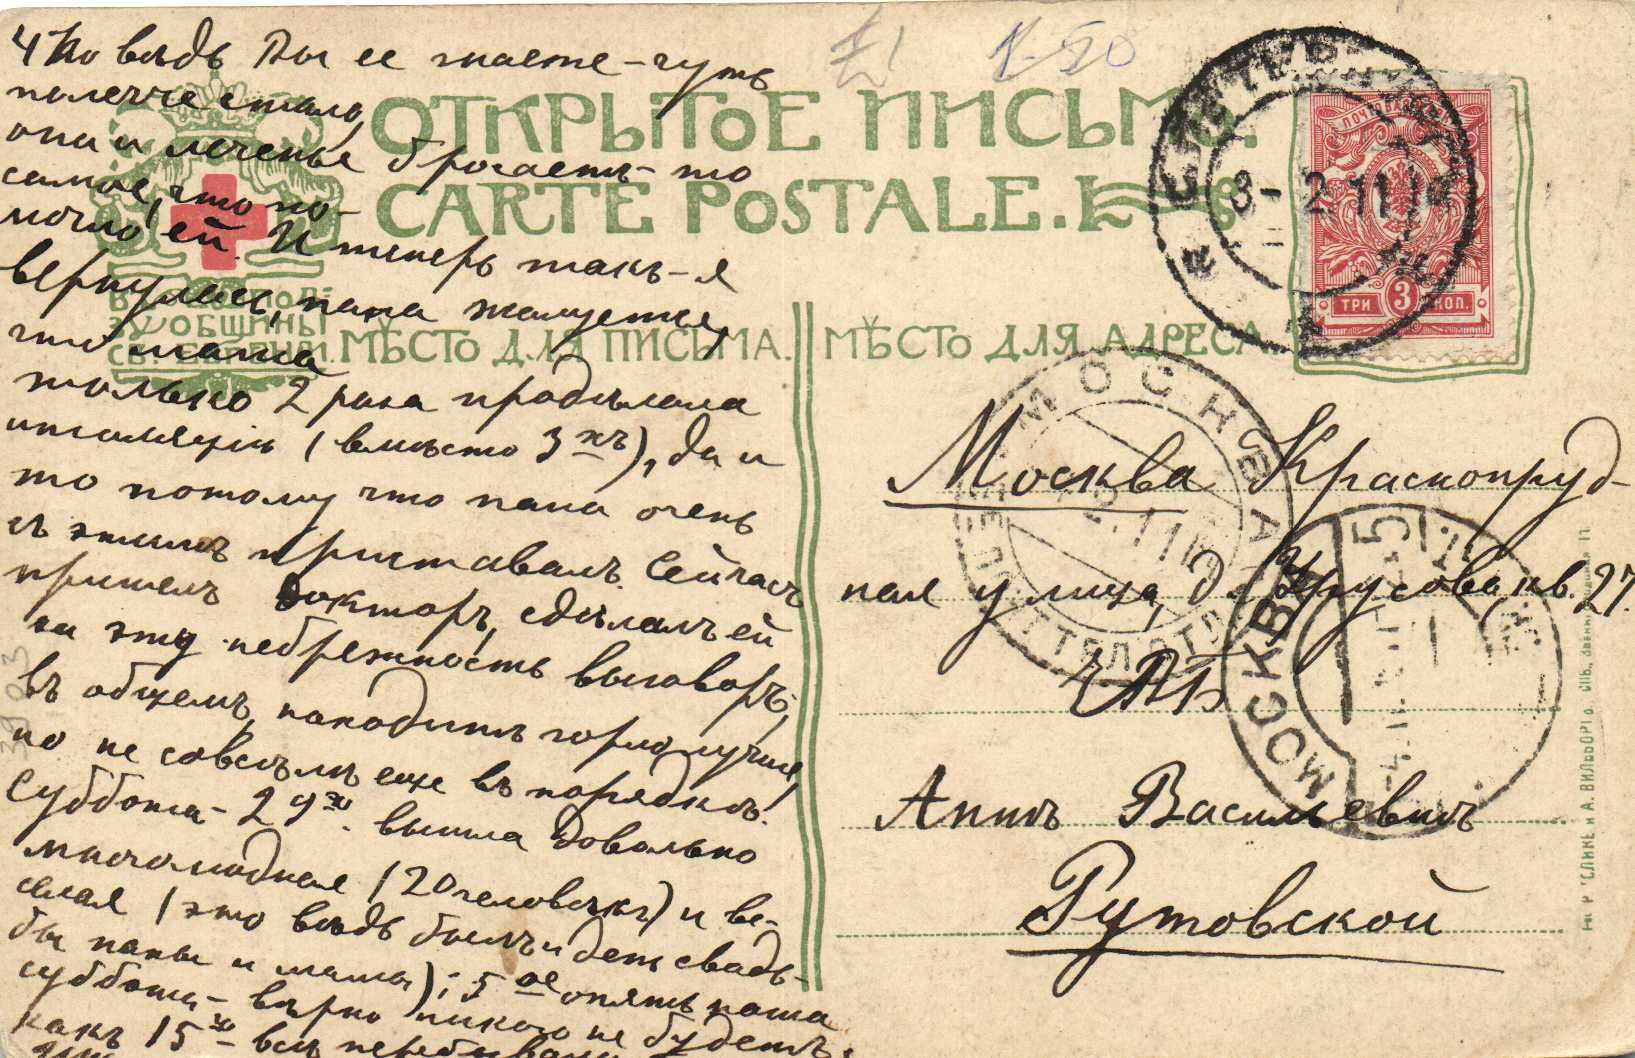 4 Но вѣдь Вы ее знаете-чуть
полегче стало,
она и леченье бросаетъ-то
самое, что по-
могло ей. И теперь такъ-я
вернулась, папа жалуется,
что мама
только 2 раза продѣлала
ингаляцiи (вмѣсто 3хъ), да и
то потому что папа очень
съ этимъ приставалъ. Сейчасъ
пришелъ докторъ, сдѣлалъ ей
за эту небрежность выговоръ;
въ общемъ, находитъ горло лучше,
но не совсѣмъ еще въ порядкѣ!
Суббота-29го. вышла довольно
многолюдная (20 человѣкъ) и ве-
селая (это вѣдь былъ и день свадь-
бы папы и мамы); 5ое опять наша
суббота-вѣрно никого не будетъ,
какъ 15го-всѣ перебывали
ОТКРЫТОЕ ПИСЬМО.
CARTE POSTALE.
В ПОЛЬЗУ ОБЩИНЫ
СВ. ЕВГЕНИИ.
МѢСТО ДЛЯ ПИСЬМА.
МѢСТО ДЛЯ АДРЕСА.
ПОЧТОВАЯ МАРКА
ТРИ 3 КОП.
С ПЕТЕРБУРГ
3-2 11 14
МОСКВА
2.11
МОСКВА
5
Москва Краснопруд-
ная улица, д. Урусова, кв. 27.
ЕВБ
Аннѣ Васильевнѣ
Рутовской